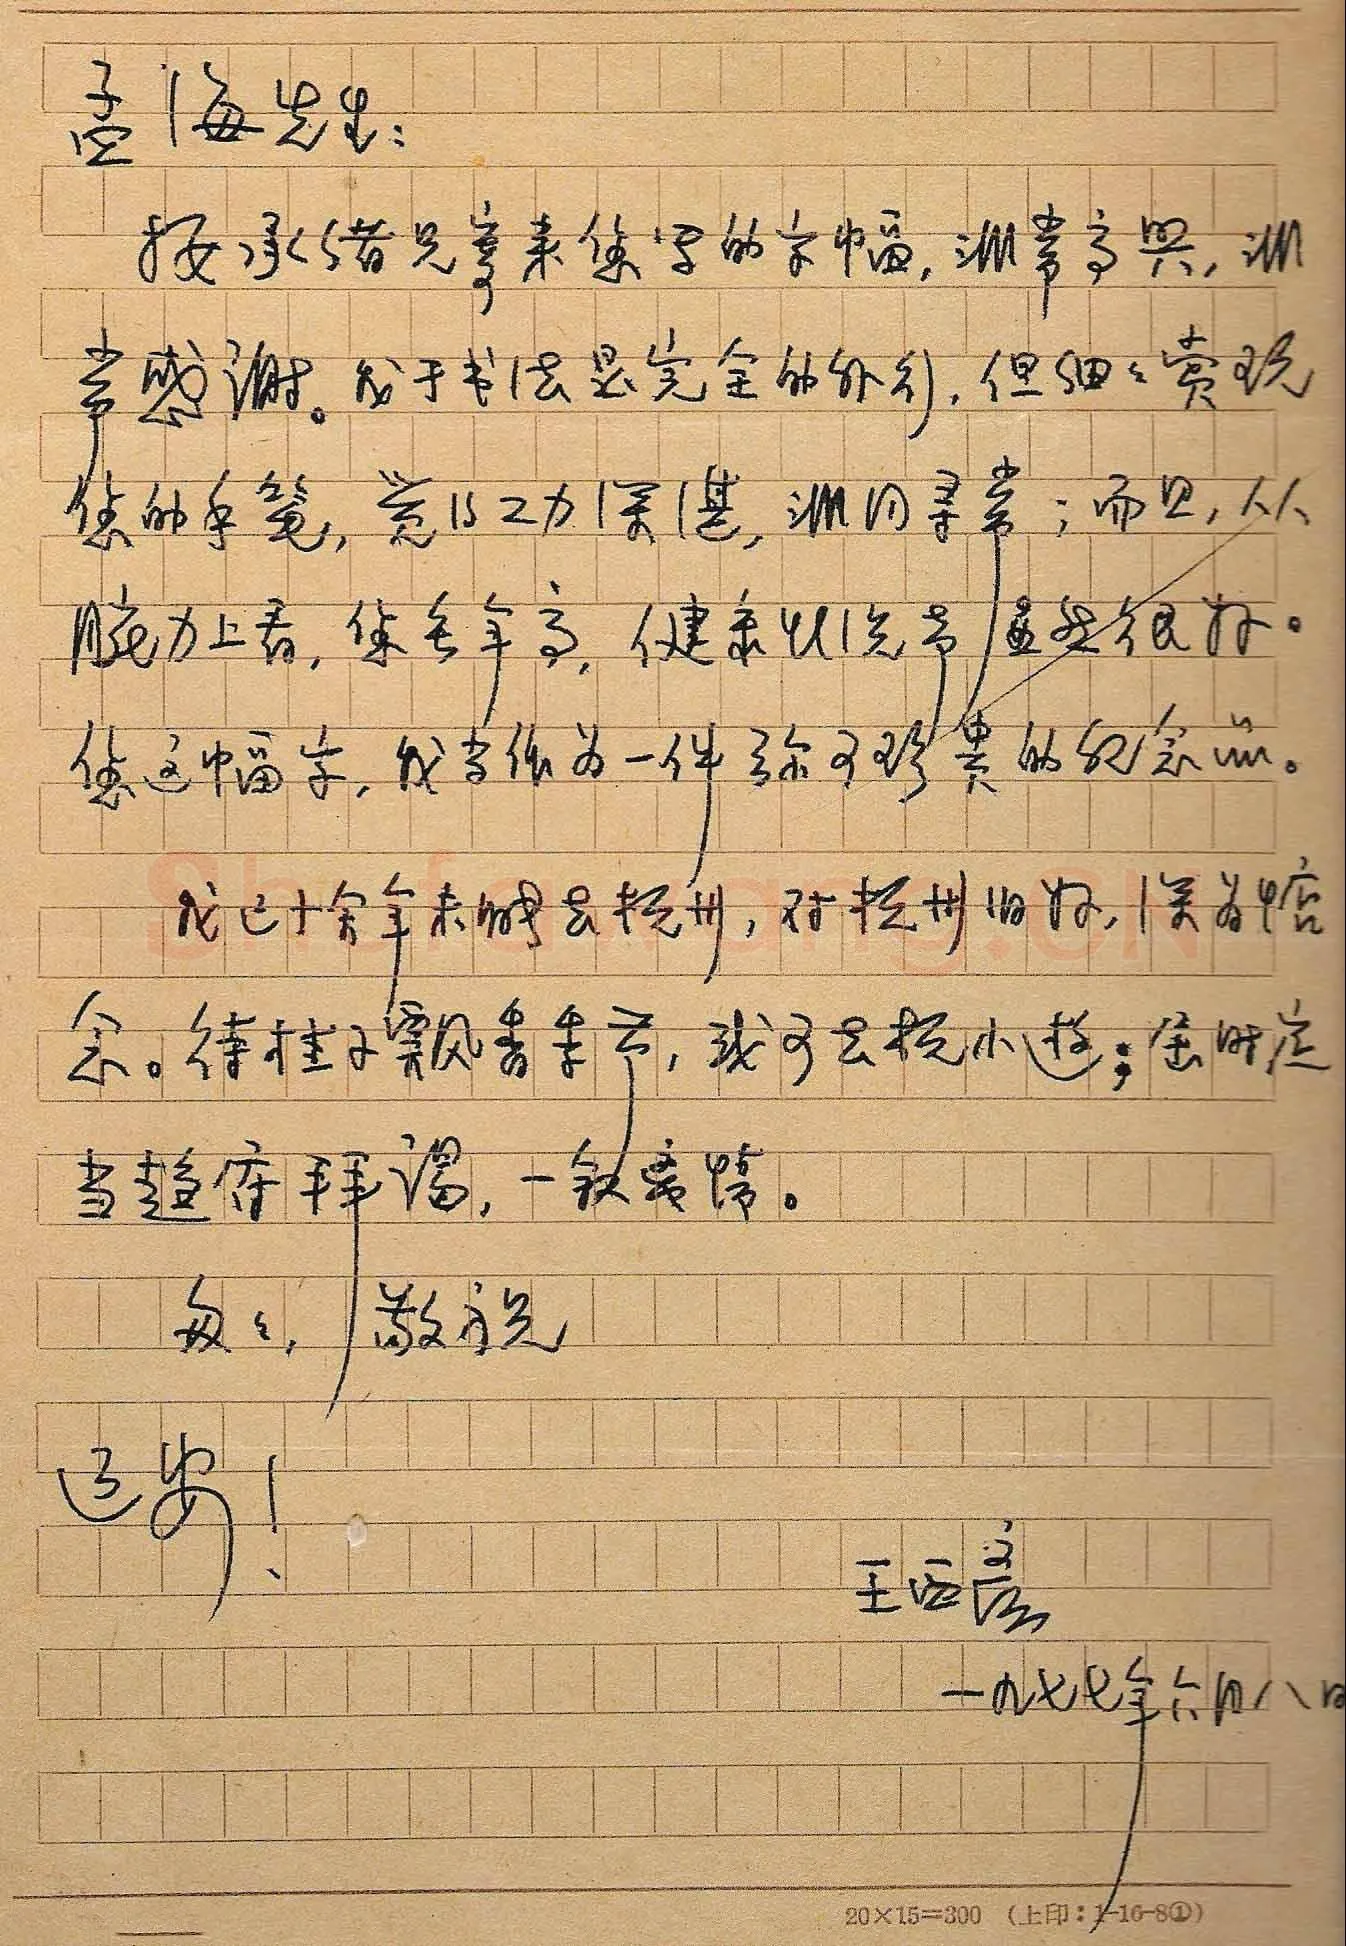 孟海先生：
接承绪兄寄来您写的字幅，非常高兴，非
常感谢。我于书法是完全的外行，但细々赏玩
您的手笔，觉得工力深湛，非同寻常；而且，从
腕力上看，您年高，健康状况当虽然很好。
您这幅字，我当作为一件弥可珍贵的纪念品。
我已十余年未能去杭州，对杭州旧好，深为惦
念。待桂子飘香季节，或可去杭小游；届时定
当趋府拜谒，一叙离情。
匆々，敬祝
近安！
王西彦
一九七七年六月八日
20×15=300 （上印：1-16-8①）
Shufawang.CN